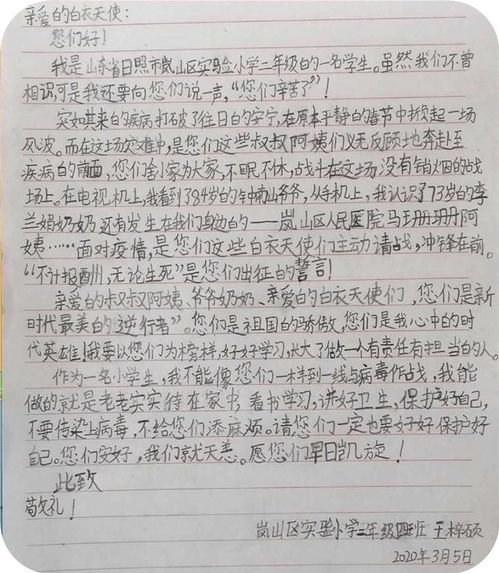 亲爱的白衣天使:
您们好!
我是山东省日照市岚山区实验小学二年级的一名学生。虽然我们不曾
相识可是我还要向您们说一声,“您们辛苦了”!
突如其来的疾病打破了往日的安宁,在原本平静的春节中掀起一场
风波。而在这场灾难中,是您们这些叔叔阿姨们义无反顾地奔赴至
疾病的前面,您们舍小家为大家,不眠不休,战斗在这场没有销烟的战
场上。在电视机上,我看到了84岁的钟南山爷爷,从手机上,我认识了73岁的李
兰娟奶奶还有发生在我们身边的——岚山区人民医院马珊珊阿
姨……面对疫情,是您们这些白衣天使们主动请战,冲锋在前。
“不计报酬,无论生死”是您们出征的誓言!
亲爱的叔叔阿姨、爷爷奶奶、亲爱的白衣天使们,您们是新
时代最美的逆行者”。您们是祖国的骄傲,您们是我心中的时
代英雄!我要以您们为榜样,好好学习,长大了做一个有责任有担当的人。
作为一名小学生,我不能像您们一样到一线与病毒作战,我能
做的就是老老实实待在家中看书学习,讲好卫生,保护好自己,
不要传染上病毒,不给您们添麻烦。请您们一定也要好好保护好
自己。您们安好,我们就无恙。愿您们早日凯旋!
此致
敬礼!
岚山区实验小学二年级四班 王梓硕
2020年3月5日